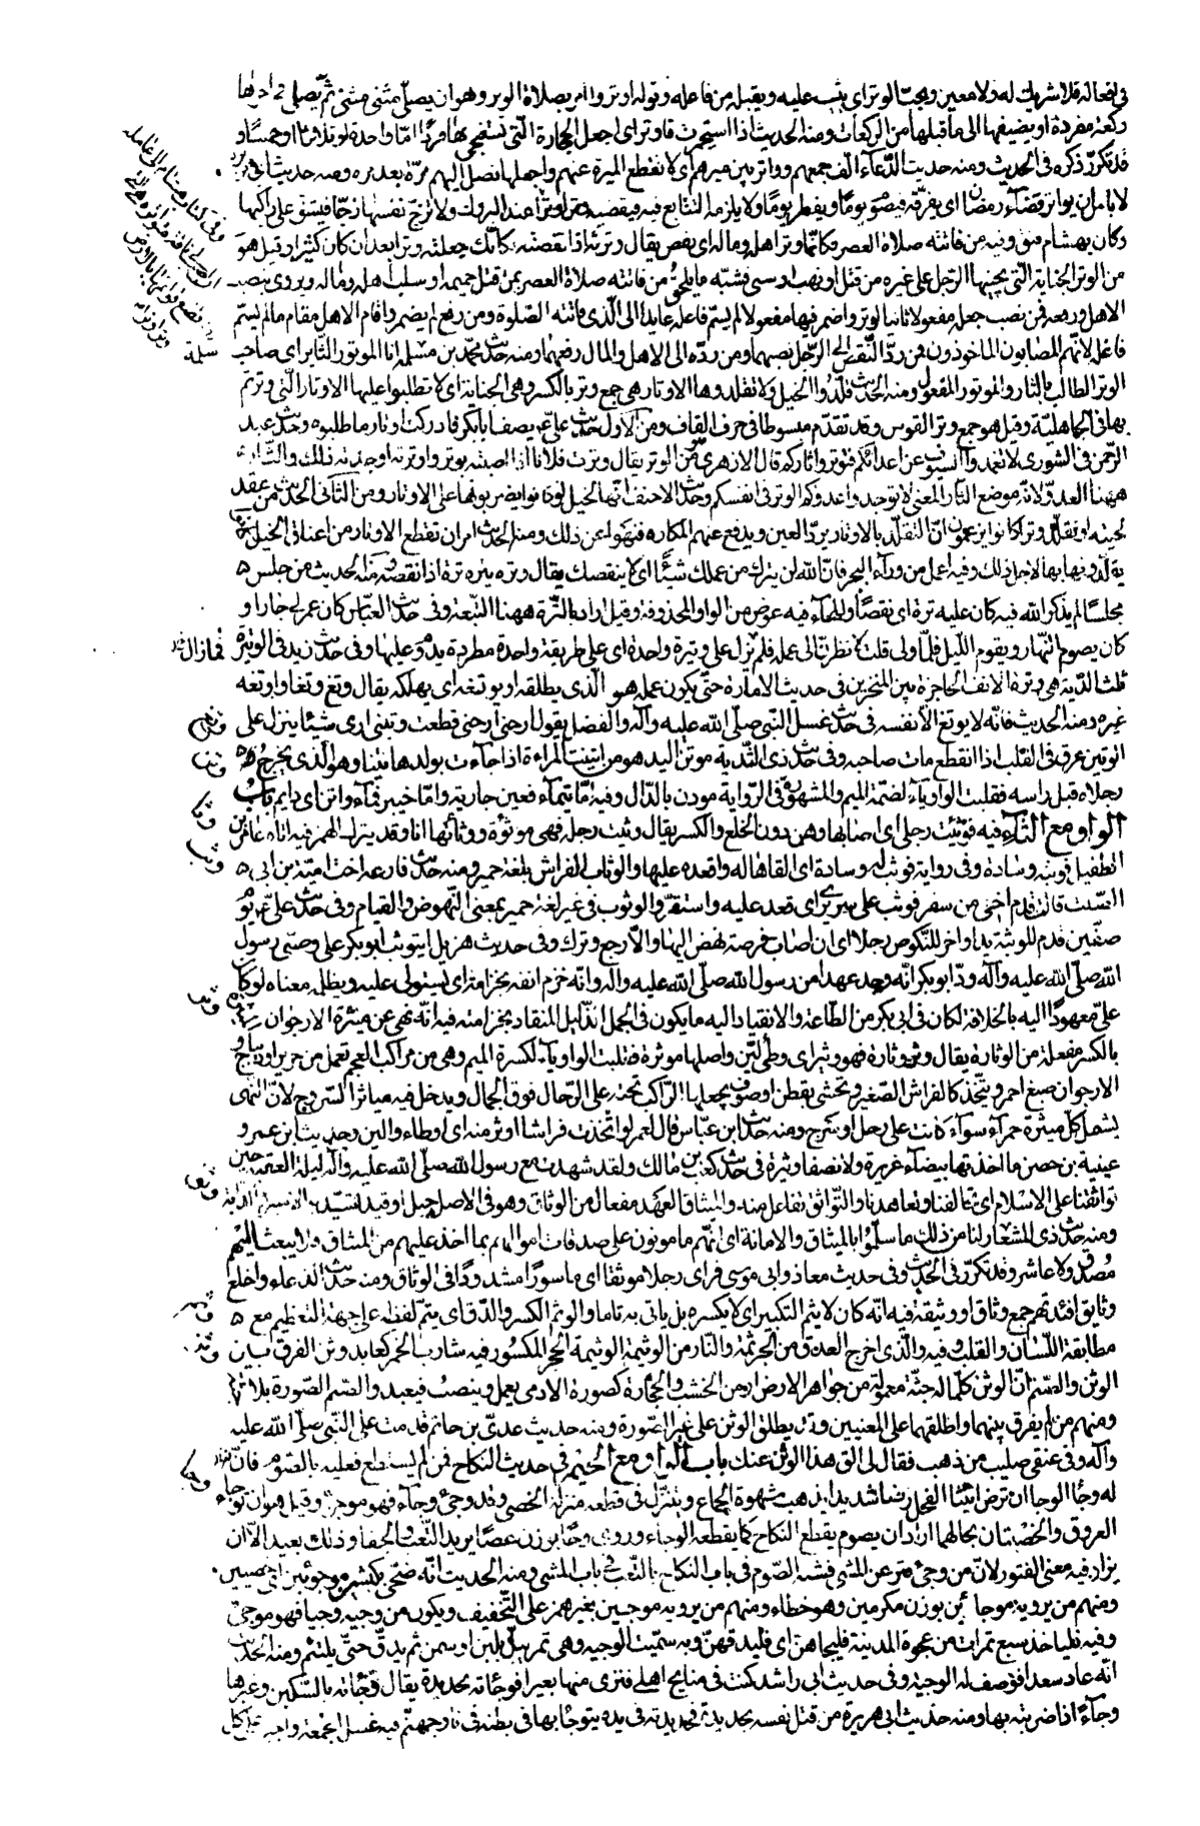 في افعاله فلا شريك له ولا معين ويحب الوتر اى يثيب عليه ويقبله من فاعله وقوله اوتروا امر بصلاة الوتر وهو ان يصلى مثنى مثنى ثم يصلى في اخرها
ركعة مفردة او يضيفها الى ما قبلها من الركعات ومنه الحديث اذا استجمرت فاوتر اى اجعل الحجارة التى تستنجى بها فردا اما واحدة او ثلاثا او خمسا و
قد تكرر ذكره فى الحديث ومنه حديث الدعاء الف جمعهم وواتر بين ميرهم اى لا تقطع الميرة عنهم واجعلها تصل اليهم مرة بعد مرة ومنه حديث ابى
لا باس ان يواتر قضاء رمضان اى يفرقه فيصوم يوما ويفطر يوما ولا يلزمه التتابع فيه فيقضيه وترا وترا
من فاتته صلاة العصر فكانما وتر اهله وماله اى نقص يقال وترته اذا نقصته فكانك جعلته وترا بعد ان كان كثيرا وقيل هو
من الوتر الجناية التى يجنيها الرجل على غيره من قتل او نهب او سبى فشبه ما يلحق من فاتته صلاة العصر بمن قتل حميمه او سلب اهله وماله ويروى بنصب
الاهل ورفعه فمن نصب جعله مفعولا ثانيا لوتر واضمر فيها مفعولا لم يسم فاعله عايدا الى الذى فاتته الصلوة ومن رفع لم يضمر واقام الاهل مقام مالم يسم
فاعله لانهم المصابون الماخوذون فمن رد النقص الى الرجل نصبهما ومن رده الى الاهل والمال رفعهما ومنه حديث محمد بن مسلمة انا الموتور الثاير اى صاحب
الوتر الطالب بالثار والموتور المفعول ومنه الحديث قلدوا الخيل ولا تقلدوها الاوتار هى جمع وتر بالكسر وهى الجناية اى لا تطلبوا عليها الاوتار التى وترتم
بها فى الجاهلية وقيل هو جمع وتر القوس وقد تقدم مبسوطا فى حرف القاف ومن الاول حديث على يصف ابابكر فادركت اوتار ما طلبوه وحديث عبد
الرحمن فى الشورى لا تغمدوا السيوف عن اعدائكم فتوتروا ثاركم قال الازهرى هو من الوتر يقال وترت فلانا اذا اصبته بوتر واوترته اوجدته ذلك والثار
ههنا العدو لانه موضع الثار المعنى لا توجدوا عدوكم الوتر فى انفسكم وحديث الاحنف انها الخيل لو كانوا يضربونها على الاوتار ومن الثانى الحديث من عقد
لحيته او تقلد وترا كانوا يزعمون ان التقلد بالاوتار يرد العين ويدفع عنهم المكاره فنهوا عن ذلك ومنه الحديث امر ان تقطع الاوتار من اعناق الخيل
وفيه اعمل من وراء البحر فان الله لن يترك من عملك شيئا اى لا ينقصك يقال وتره يتره ترة اذا نقصه ومنه الحديث من جلس
مجلسا لم يذكر الله فيه كان عليه ترة اى نقصا والهاء فيه عوض من الواو المحذوفة وقيل اراد بالترة ههنا التبعة وفى حديث العباس كان عمر لى جارا و
كان يصوم النهار ويقوم الليل فلما ولى قلت لانظرن الى عمله فلم يزل على وتيرة واحدة اى على طريقة واحدة مطردة يدوم عليها وفى حديث زيد فى الوترة
ثلث الدية هى وترة الانف الحاجزة بين المنخرين فى حديث الامارة حتى يكون عمله هو الذى يطلقه او يوتغه اى يهلكه يقال وتغ وتغا واوتغه
غيره ومنه الحديث فانه لا يوتغ الا نفسه فى حديث غسل النبى صلى الله عليه وآله والفضل يقول ارحنى ارحنى قطعت وتينى ارى شيئا ينزل على
الوتين عرق فى القلب اذا انقطع مات صاحبه وفى حديث ذى الثدية موتن اليد هو من ايتنت المراة اذا جاءت بولدها يتنا وهو الذى يخرج
رجلاه قبل راسه فقلبت الواو ياء لضمة الميم والمشهور فى الرواية مودن بالدال وفيه اما تيماء فعين جارية واما خيبر فماء واتن اى دايم باب
الواو مع الثاء فيه فوثئت رجلى اى اصابها وهن دون الخلع والكسر يقال وثئت رجله فهى موثوة ووثأتها انا وقد يترك الهمز فيه اتاه عامر بن
الطفيل فوثبه وسادة وفى رواية فوثب له وسادة اى القاها له واقعده عليها والوثاب الفراش بلغة حمير ومنه حديث فارعة اخت امية بن ابى
الصلت قالت قدم اخى من سفر فوثب على سريرى اى قعد عليه واستقر والوثوب فى غير لغة حمير بمعنى النهوض والقيام وفى حديث على يوم
صفين قدم للوثبة يدا واخر للنكوص رجلا اى ان اصاب فرصة نهض اليها والا رجع وترك وفى حديث هزيل ايتوثب ابو بكر على وصى رسول
الله صلى الله عليه وآله ود ابو بكر انه وجد عهدا من رسول الله صلى الله عليه واله وانه خزم انفه بخزامة اى يستولى عليه ويظلمه معناه لو كان
على معهودا اليه بالخلافة لكان فى ابى بكر من الطاعة والانقياد اليه ما يكون فى الجمل الذليل المنقاد بخزامته فيه انه نهى عن ميثرة الارجوان
بالكسر مفعلة من الوثارة يقال وثر وثارة فهو وثير اى وطى لين واصلها موثرة فقلبت الواو ياء لكسرة الميم وهى من مراكب العجم تعمل من حرير او ديباج و
الارجوان صبغ احمر ويتخذ كالفراش الصغير وتحشى بقطن او صوف يجعلها الراكب تحته على الرحال فوق الجمال ويدخل فيه مياثر السروج لان النهى
يشمل كل ميثرة حمراء سواء كانت على رحل او سرج ومنه حديث ابن عباس قال لعمر لو اتخذت فراشا اوثر منه اى اوطاء والين وحديث ابن عمر و
عيينة بن حصن ما اخذتها بيضاء غريرة ولا نصفا وثيرة فى حديث كعب بن مالك ولقد شهدت مع رسول الله صلى الله عليه وآله ليلة العقبة حين
تواثقنا على الاسلام اى تحالفنا وتعاهدنا والتواثق تفاعل منه والميثاق العهد مفعال من الوثاق وهو فى الاصل حبل او قيد يشد به الاسير والدابة
ومنه حديث ذى المشعار لنا من ذلك ما سلموا بالميثاق والامانة اى انهم مامونون على صدقات اموالهم بما اخذ عليهم من الميثاق فلا يبعث اليهم
مصدق ولا عاشر وقد تكرر فى الحديث وفى حديث معاذ وابى موسى فراى رجلا موثقا اى ماسورا مشدودا فى الوثاق ومنه حديث الدعاء واخلع
وثايق افئدتهم جمع وثاق او وثيقة فيه انه كان لا يثم التكبير اى لا يكسره بل ياتى به تاما والوثم الكسر والدق اى يتم لفظه على جهة التعظيم مع
مطابقة اللسان والقلب وفيه والذى اخرج العذق من الجريمة والنار من الوثيمة الوثيمة الحجر المكسور فيه شارب الخمر كعابد وثن الفرق بين
الوثن والصنم ان الوثن كلما له جثة معمولة من جواهر الارض او من الخشب والحجارة كصورة الادمى يعمل وينصب فيعبد والصنم الصورة بلا جثة
ومنهم من لم يفرق بينهما واطلقهما على المعنيين وقد يطلق الوثن على غير الصورة ومنه حديث عدى بن حاتم قدمت على النبى صلى الله عليه
وآله وفى عنقى صليب من ذهب فقال لى الق هذا الوثن عنك باب الواو مع الجيم فى حديث النكاح فمن لم يستطع فعليه بالصوم فانه
له وجاء الوجاء ان ترض انثيا الفحل رضا شديدا يذهب شهوة الجماع ويتنزل فى قطعه منزلة الخصى وقد وجئ وجاء فهو موجوء وقيل هو ان توجأ
العروق والخصيتان بحالهما اراد ان يصوم يقطع النكاح كما يقطعه الوجاء وروى وجا بوزن عصا يريد التعب والحفا وذلك بعيد الا ان
يراد فيه معنى الفتور لان من وجى فتر عن المشى فشبه الصوم فى باب النكاح بالتعب فى باب المشى ومنه الحديث انه ضحى بكبشين موجوئين اى خصيين
ومنهم من يرويه موجأين بوزن مكرمين وهو خطاء ومنهم من يرويه موجيين بغير همز على التخفيف ويكون من وجيه وجيا فهو موجى
وفيه فلياخذ سبع تمرات من عجوة المدينة فليجاهن اى فليدقهن وبه سميت الوجيه وهى تمر يبل بلبن او سمن ثم يدق حتى يلتئم ومنه الحديث
انه عاد سعدا فوصف له الوجيئة وفى حديث ابى راشد كنت فى منايح اهلى فنزى منها بعير افوجاته بحديدة يقال وجاته بالسكين وغيرها
وجاء اذا ضربته بها ومنه حديث ابى هريرة من قتل نفسه بحديدة فحديدته فى يده يتوجأ بها فى بطنه فى نار جهنم فيه غسل الجمعة واجب على كل